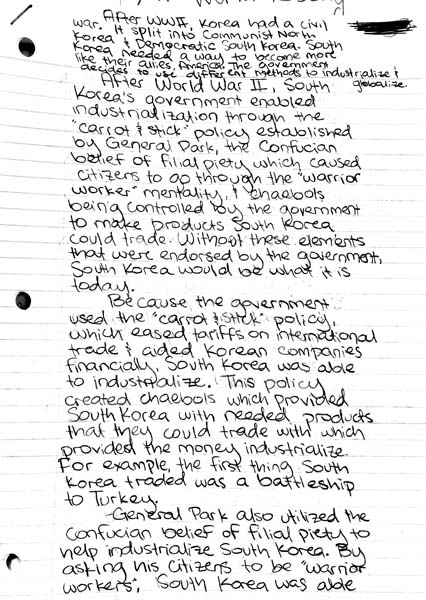 After WWII, Korea had a civil
war. It split into Communist North
Korea & Democratic South Korea. South
Korea needed a way to become more
like their allies, America. The government
decided to use different methods to industrialize &
globalize.
After World War II, South
Korea's government enabled
industrialization through the
"carrot & stick" policy established
by General Park, the Confucian
belief of filial piety which caused
citizens to go through the "warrior
worker" mentality, & chaebols
being controlled by the government
to make products South Korea
could trade. Without these elements
that were endorsed by the government,
South Korea would be what it is
today.
Because the government
used the "carrot & stick" policy,
which eased tariffs on international
trade & aided Korean companies
financially, South Korea was able
to industrialize. This policy
created chaebols which provided
South Korea with needed products
that they could trade with which
provided the money industrialize.
For example, the first thing South
Korea traded was a battleship
to Turkey.
General Park also utilized the
Confucian belief of filial piety to
help industrialize South Korea. By
asking his citizens to be "warrior
workers", South Korea was able